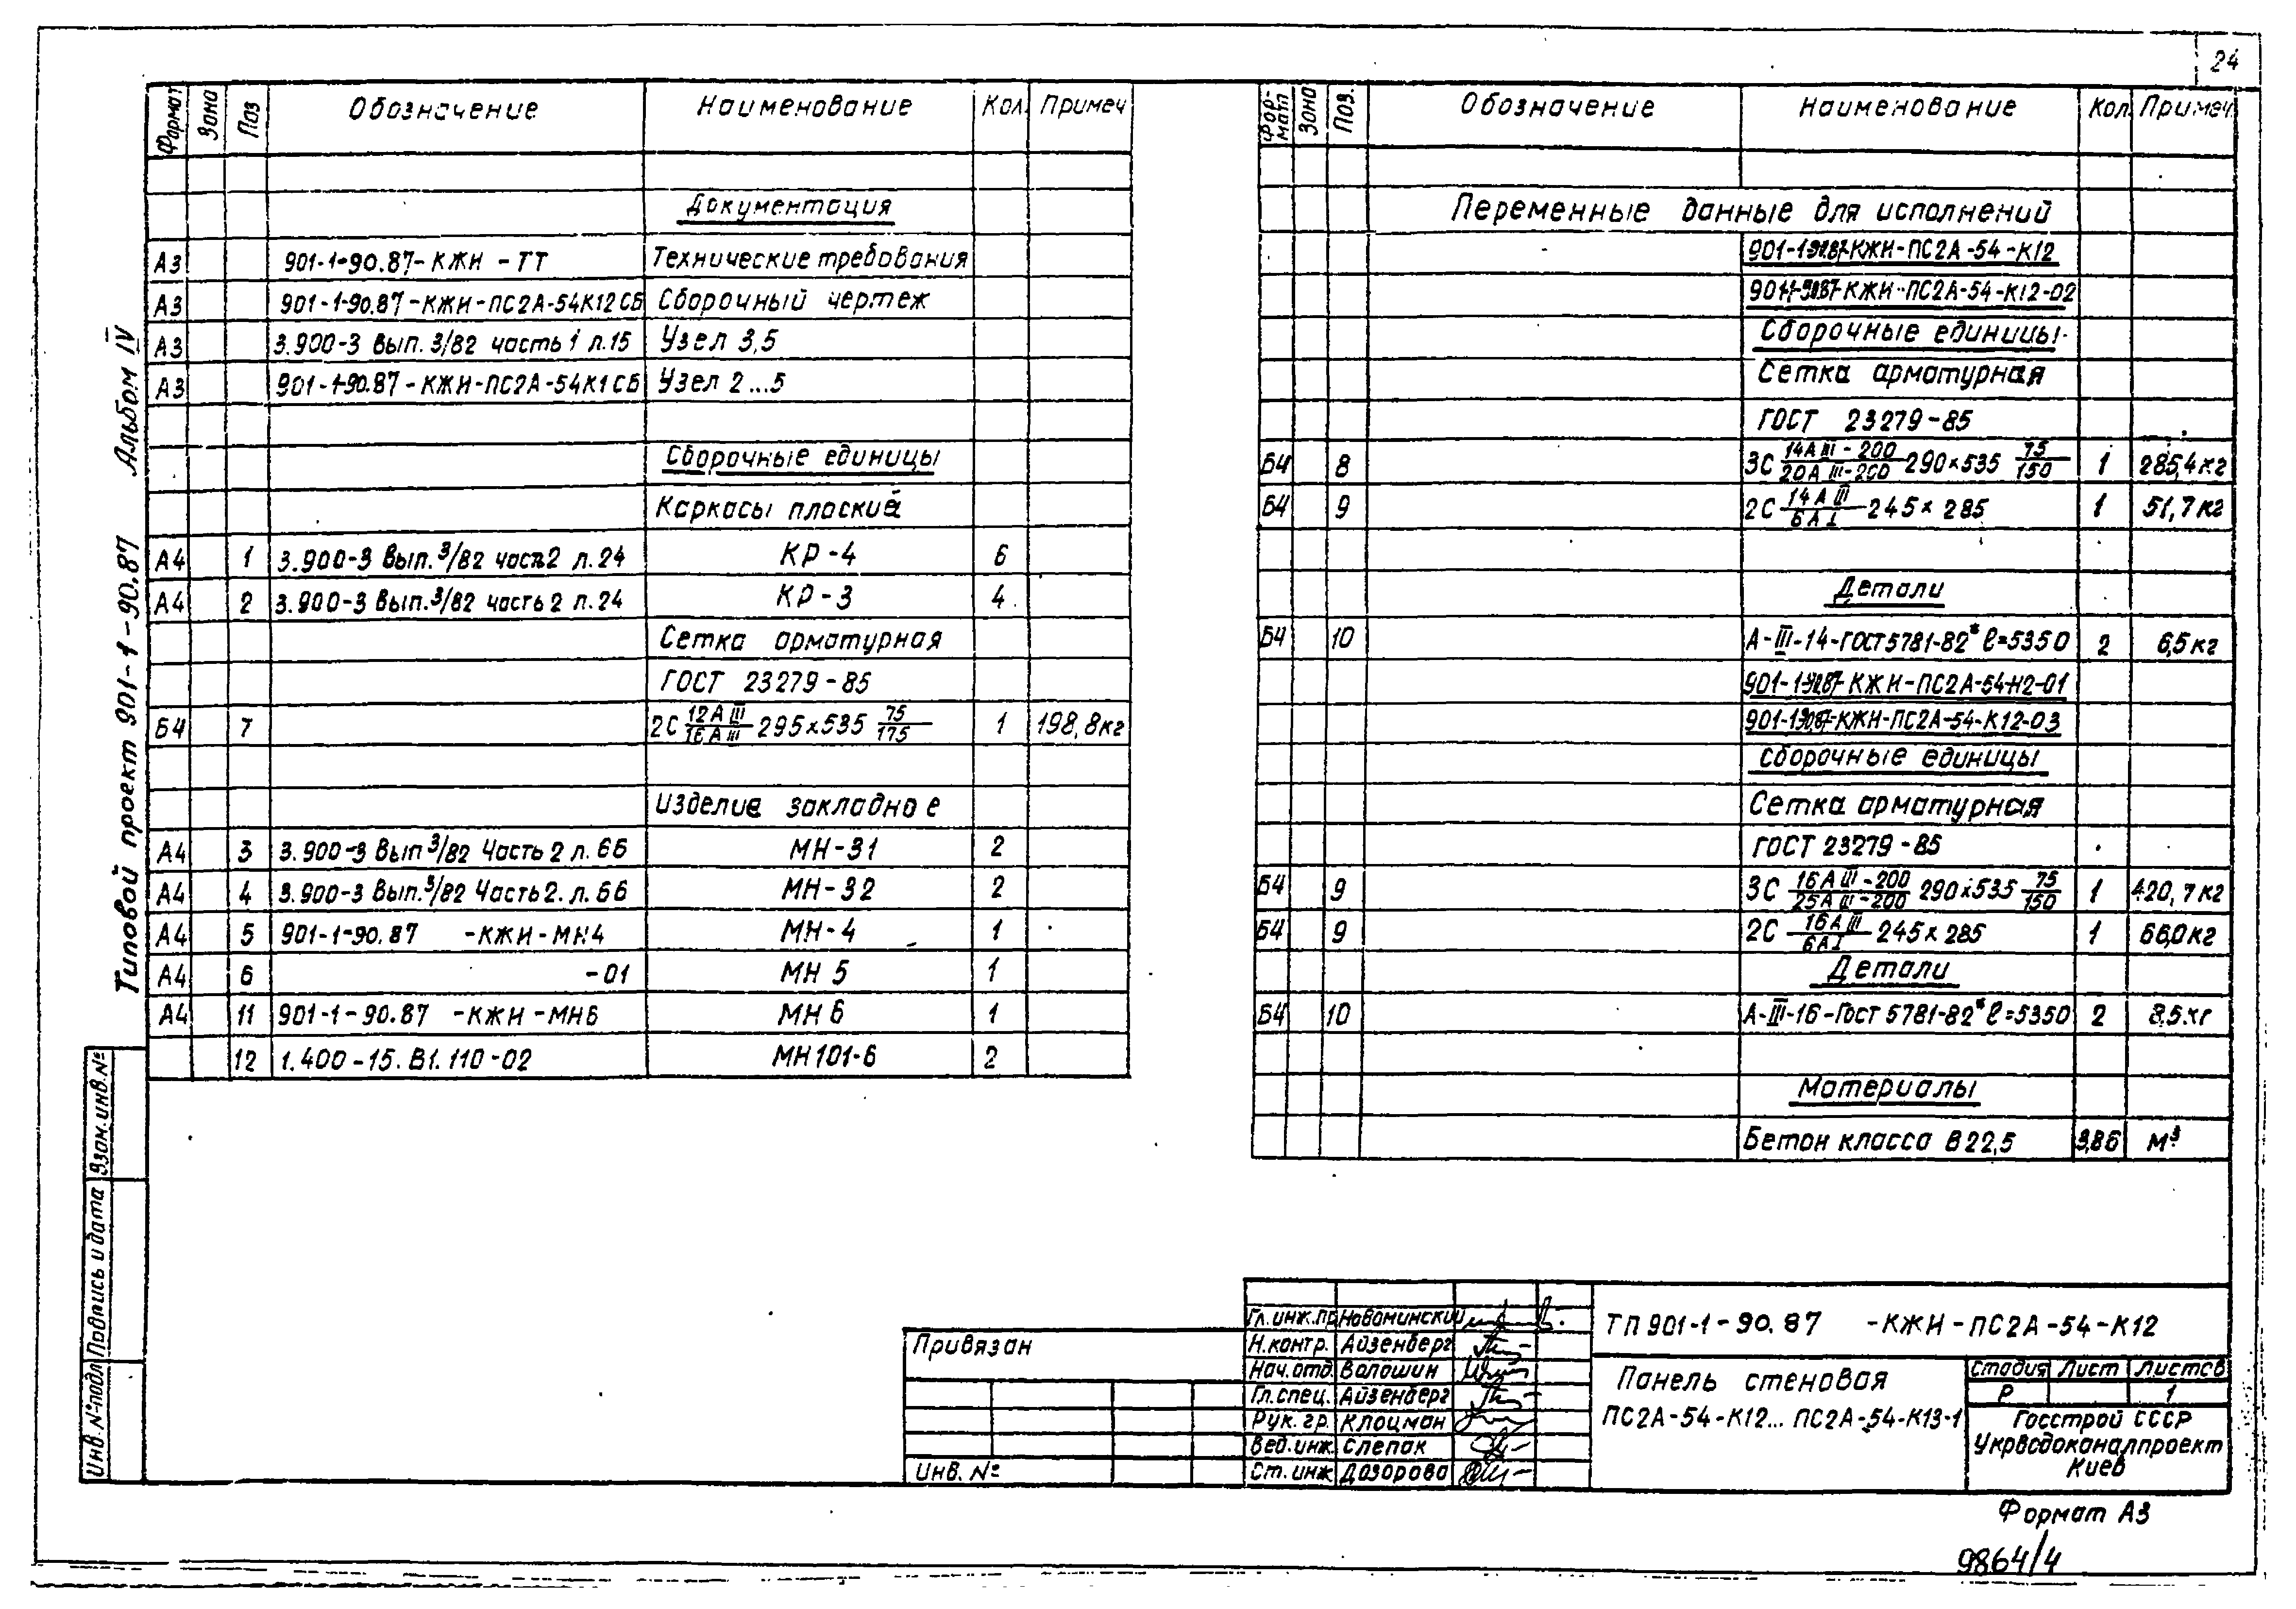 24
Типовой проект 901-1-90.87 Альбом IV
Формат Зона Поз Обозначение Наименование Кол. Примеч
Документация
А3 901-1-90.87-КЖИ-ТТ Технические требования
А3 901-1-90.87-КЖИ-ПС2А-54К12СБ Сборочный чертеж
А3 3.900-3 Вып. 3/82 часть 1 л.15 Узел 3,5
А3 901-1-90.87-КЖИ-ПС2А-54К1СБ Узел 2...5
Сборочные единицы
Каркасы плоские
А4 1 3.900-3 Вып. 3/82 часть 2 л.24 КР-4 6
А4 2 3.900-3 Вып. 3/82 часть 2 л.24 КР-3 4
Сетка арматурная
ГОСТ 23279-85
Б4 7 2С 12АIII/16АIII 295×535 75/175 1 198,8кг
Изделие закладное
А4 3 3.900-3 Вып 3/82 Часть 2 л.66 МН-31 2
А4 4 3.900-3 Вып. 3/82 Часть 2. л.66 МН-32 2
А4 5 901-1-90.87 -КЖИ-МН4 МН-4 1
А4 6 -01 МН 5 1
А4 11 901-1-90.87 -КЖИ-МН6 МН 6 1
12 1.400-15.В1.110-02 МН101-6 2
Фор-мат Зона Поз. Обозначение Наименование Кол. Примеч.
Переменные данные для исполнений
901-1-90.87-КЖИ-ПС2А-54-К12
901-1-90.87-КЖИ-ПС2А-54-К12-02
Сборочные единицы
Сетка арматурная
ГОСТ 23279-85
Б4 8 3С 14АIII-200/20АIII-200 290×535 75/150 1 285,4кг
Б4 9 2С 14АIII/6АI 245×285 1 51,7кг
Детали
Б4 10 А-III-14-ГОСТ5781-82* ℓ=5350 2 6,5кг
901-1-90.87-КЖИ-ПС2А-54-К12-01
901-1-90.87-КЖИ-ПС2А-54-К12-03
Сборочные единицы
Сетка арматурная
ГОСТ 23279-85
Б4 9 3С 16АIII-200/25АIII-200 290×535 75/150 1 420,7кг
Б4 9 2С 16АIII/6АI 245×285 1 66,0кг
Детали
Б4 10 А-III-16-Гост 5781-82* ℓ=5350 2 8,5кг
Материалы
Бетон класса В22,5 3,86 м³
Взам.инв.№
Подпись и дата
Инв.№подл
Привязан
Инв.№
Гл.инж.пр Новоминский
Н.контр. Айзенберг
Нач.отд. Волошин
Гл.спец. Айзенберг
Рук.гр. Клоцман
Вед.инж. Слепак
Ст.инж Дозорова
ТП 901-1-90.87 -КЖИ-ПС2А-54-К12
Панель стеновая
ПС2А-54-К12... ПС2А-54-К13-1
Стадия Лист Листов
Р 1
Госстрой СССР
Укрводоканалпроект
Киев
Формат А3
9864/4